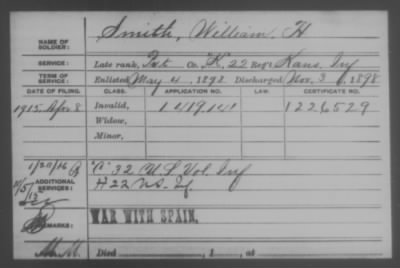 NAME OF SOLDIER: Smith, William H
SERVICE: Late rank, Pvt Co. "K", 22 Reg't Kans. Inf
TERM OF SERVICE: Enlisted May 4, 1898 Discharged Nov. 3, 1898
DATE OF FILING. CLASS. APPLICATION NO. LAW. CERTIFICATE NO.
1915 Apr 8 Invalid, 1419141 1226529
Widow,
Minor,
1/20/16
ADDITIONAL SERVICES: "C" 32 U.S. Vol. Inf
H 22 U.S. Inf
REMARKS: WAR WITH SPAIN.
Died , 1 , at